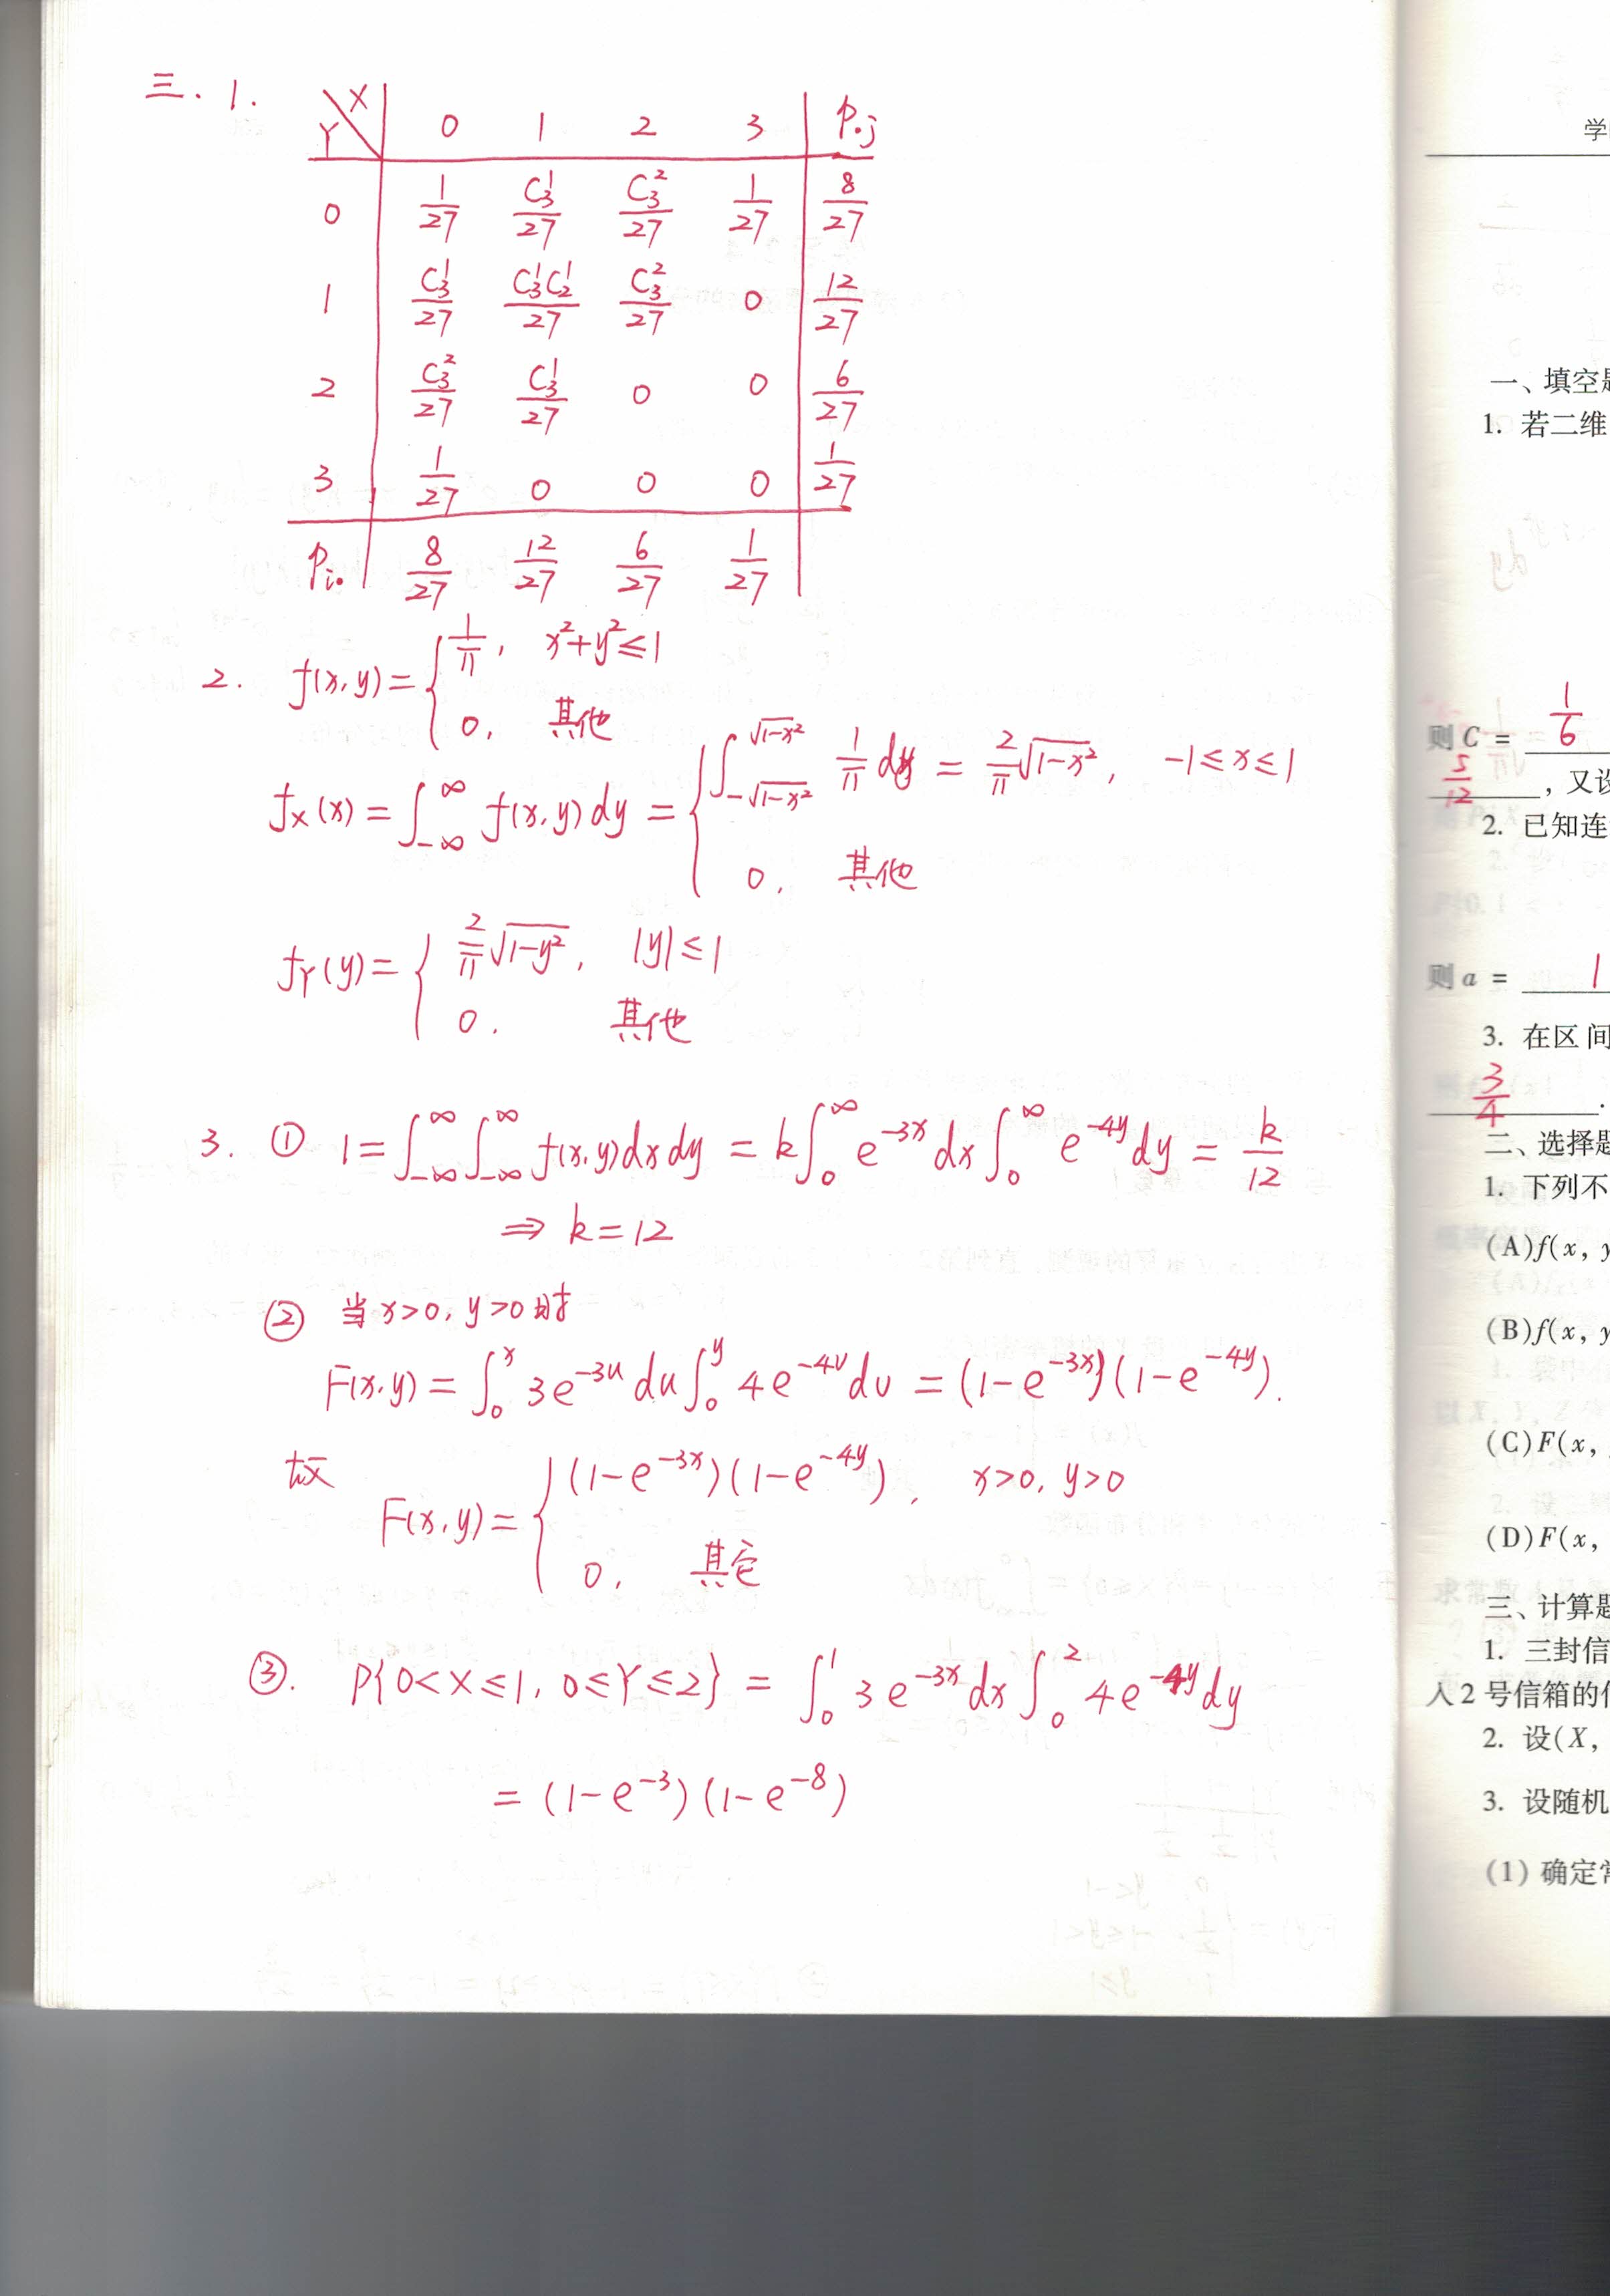 三. 1.
Y\X 0 1 2 3 P.j
0 1/27 C₃¹/27 C₃²/27 1/27 8/27
1 C₃¹/27 C₃¹C₂¹/27 C₃²/27 0 12/27
2 C₃²/27 C₃¹/27 0 0 6/27
3 1/27 0 0 0 1/27
Pi. 8/27 12/27 6/27 1/27
2. f(x,y) = { 1/π, x²+y²≤1
0, 其他
f_X(x) = ∫_{-∞}^{∞} f(x,y)dy = { ∫_{-√(1-x²)}^{√(1-x²)} 1/π dy = 2/π √(1-x²), -1≤x≤1
0, 其他
f_Y(y) = { 2/π √(1-y²), |y|≤1
0. 其他
3. ① 1 = ∫_{-∞}^{∞}∫_{-∞}^{∞} f(x,y)dxdy = k∫_0^∞ e^{-3x}dx∫_0^∞ e^{-4y}dy = k/12
⇒ k=12
② 当x>0, y>0时
F(x,y) = ∫_0^x 3e^{-3u}du∫_0^y 4e^{-4v}dv = (1-e^{-3x})(1-e^{-4y}).
故
F(x,y) = { (1-e^{-3x})(1-e^{-4y}), x>0, y>0
0, 其它
③. P{0<X≤1, 0≤Y≤2} = ∫_0^1 3e^{-3x}dx∫_0^2 4e^{-4y}dy
= (1-e^{-3})(1-e^{-8})
学
一、填空题
1. 若二维
则C = 1/6
5/12, 又设
2. 已知连
则a = 1
3. 在区间
3/4.
二、选择题
1. 下列不
(A)f(x, y
(B)f(x, y
(C)F(x,
(D)F(x,
三、计算题
1. 三封信
入2号信箱的信
2. 设(X,
3. 设随机
(1) 确定常